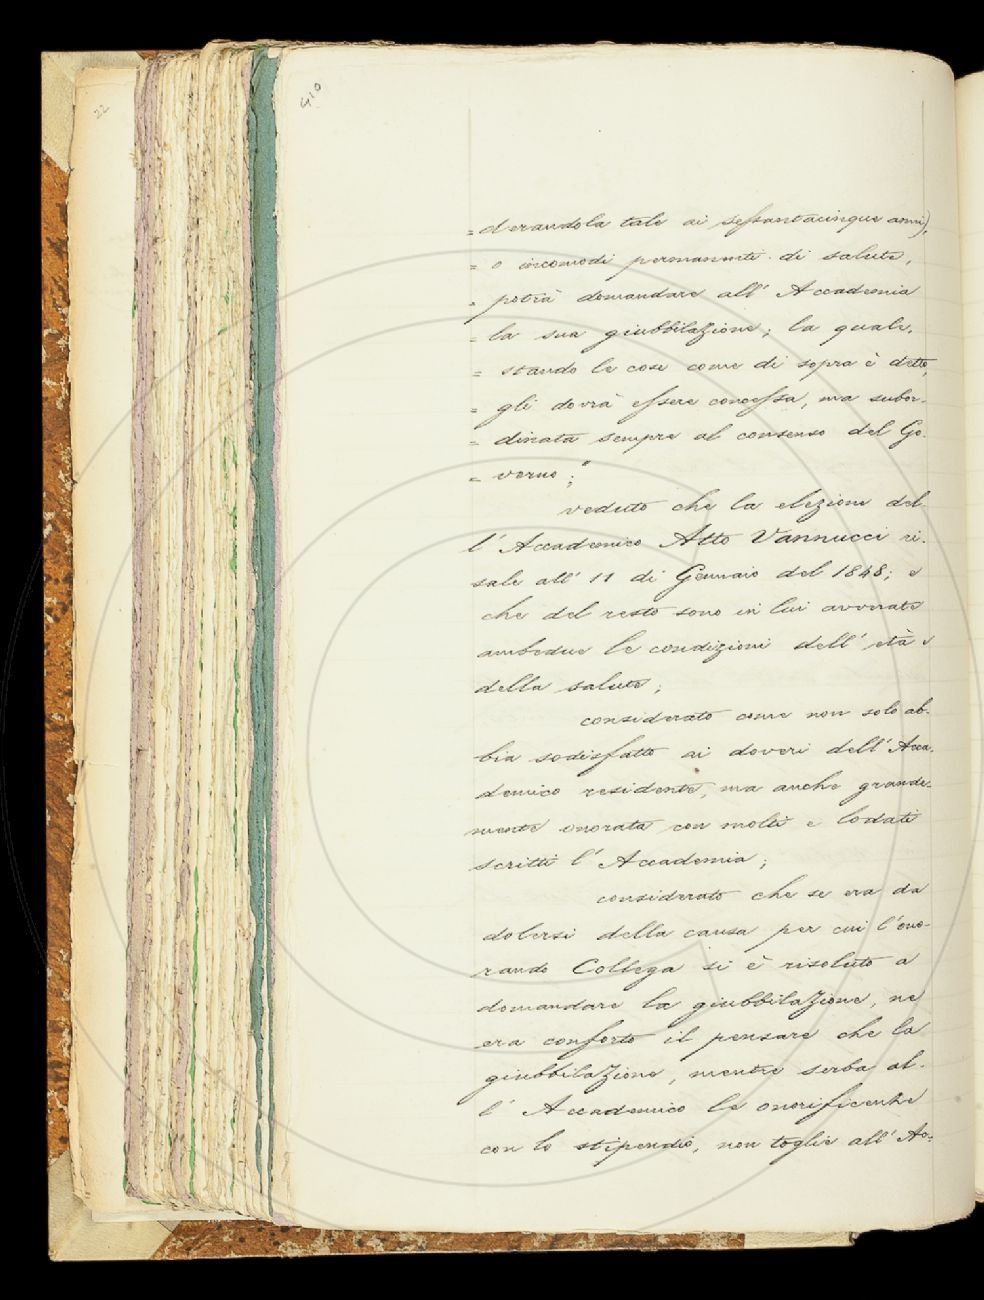 22
410
= derandola tale ai sessantacinque anni),
= o incomodi permanenti di salute,
= potrà domandare all' Accademia
= la sua giubbilazione; la quale,
= stando le cose come di sopra è detto,
= gli dovrà essere concessa, ma subor-
= dinata sempre al consenso del Go-
= verno;"
veduto che la elezione del-
l' Accademico Atto Vannucci ri-
sale all' 11 di Gennaio del 1848; e
che del resto sono in lui avverate
ambedue le condizioni dell' età e
della salute;
considerato come non solo ab-
bia sodisfatto ai doveri dell' Acca-
demico residente, ma anche grande-
mente onorata con molti e lodati
scritti l' Accademia;
considerato che se era da
dolersi della causa per cui l' ono-
rando Collega si è risoluto a
domandare la giubbilazione, ne
era conforto il pensare che la
giubbilazione, mentre serba al-
l' Accademico le onorificenze
con lo stipendio, non toglie all' Ac-